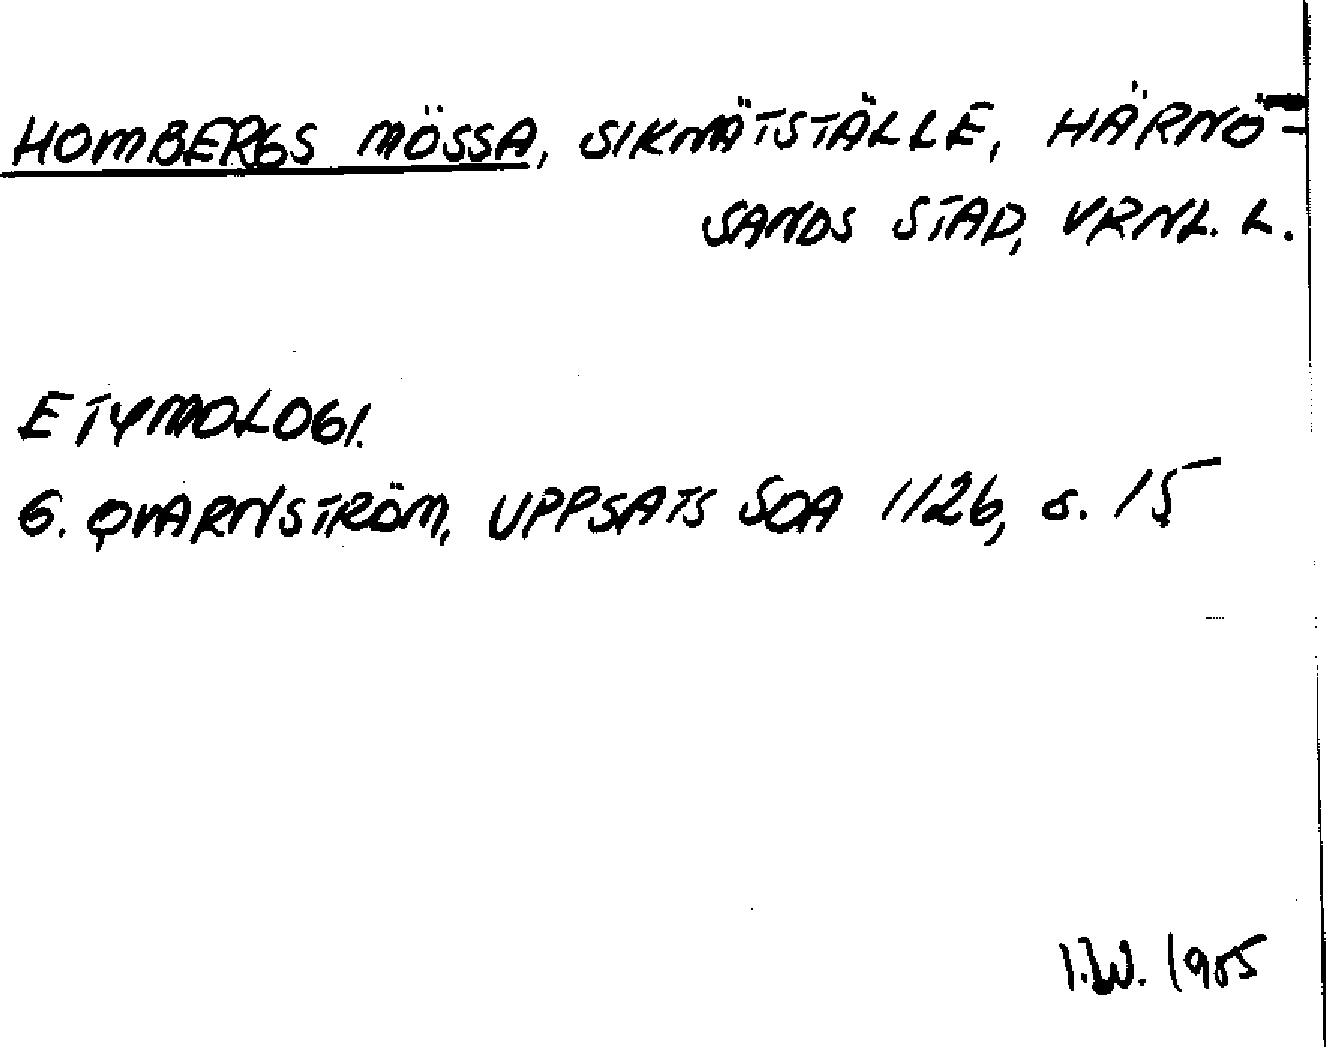 HOMBERGS MÖSSA, SIKNÄTSTÄLLE, HÄRNÖ-
SANDS STAD, VRNL. L.
ETYMOLOGI.
G. QVARNSTRÖM, UPPSATS SOA 1126, s. 15
I.W. 1985